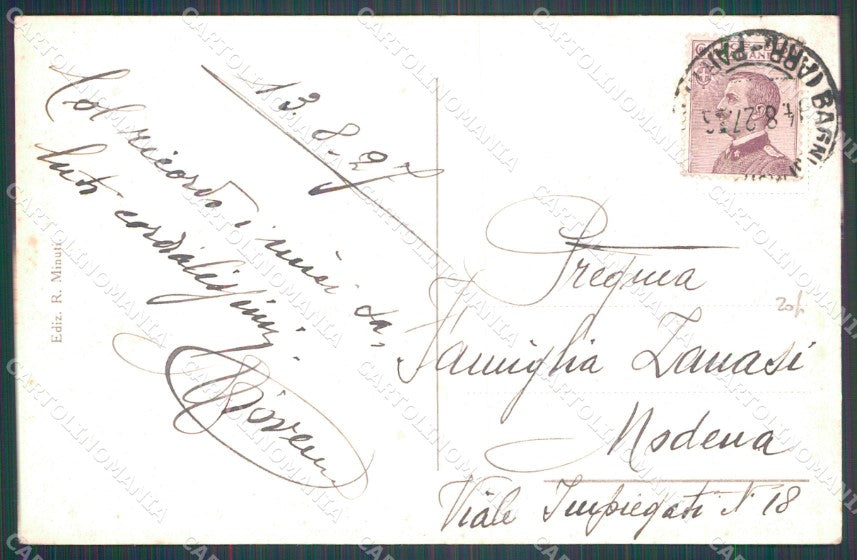 13.8-27
Col ricordo i miei sa,
luti cordialissimi.
Giovanni
Ediz. R. Minuti
BAGNI
14.8.27
Pregma
Famiglia Zanasi
Modena
Viale Impiegati N 18
CARTOLINOMANIA